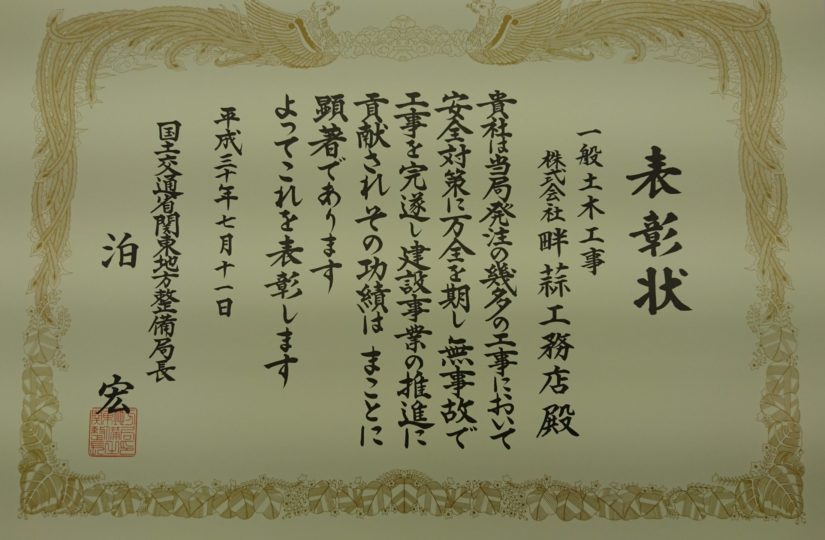 表彰状
一般土木工事
株式会社畔蒜工務店殿
貴社は当局発注の幾多の工事において
安全対策に万全を期し無事故で
工事を完遂し建設事業の推進に
貢献されその功績はまことに
顕著であります
よってこれを表彰します
平成三十年七月十一日
国土交通省関東地方整備局長
泊宏